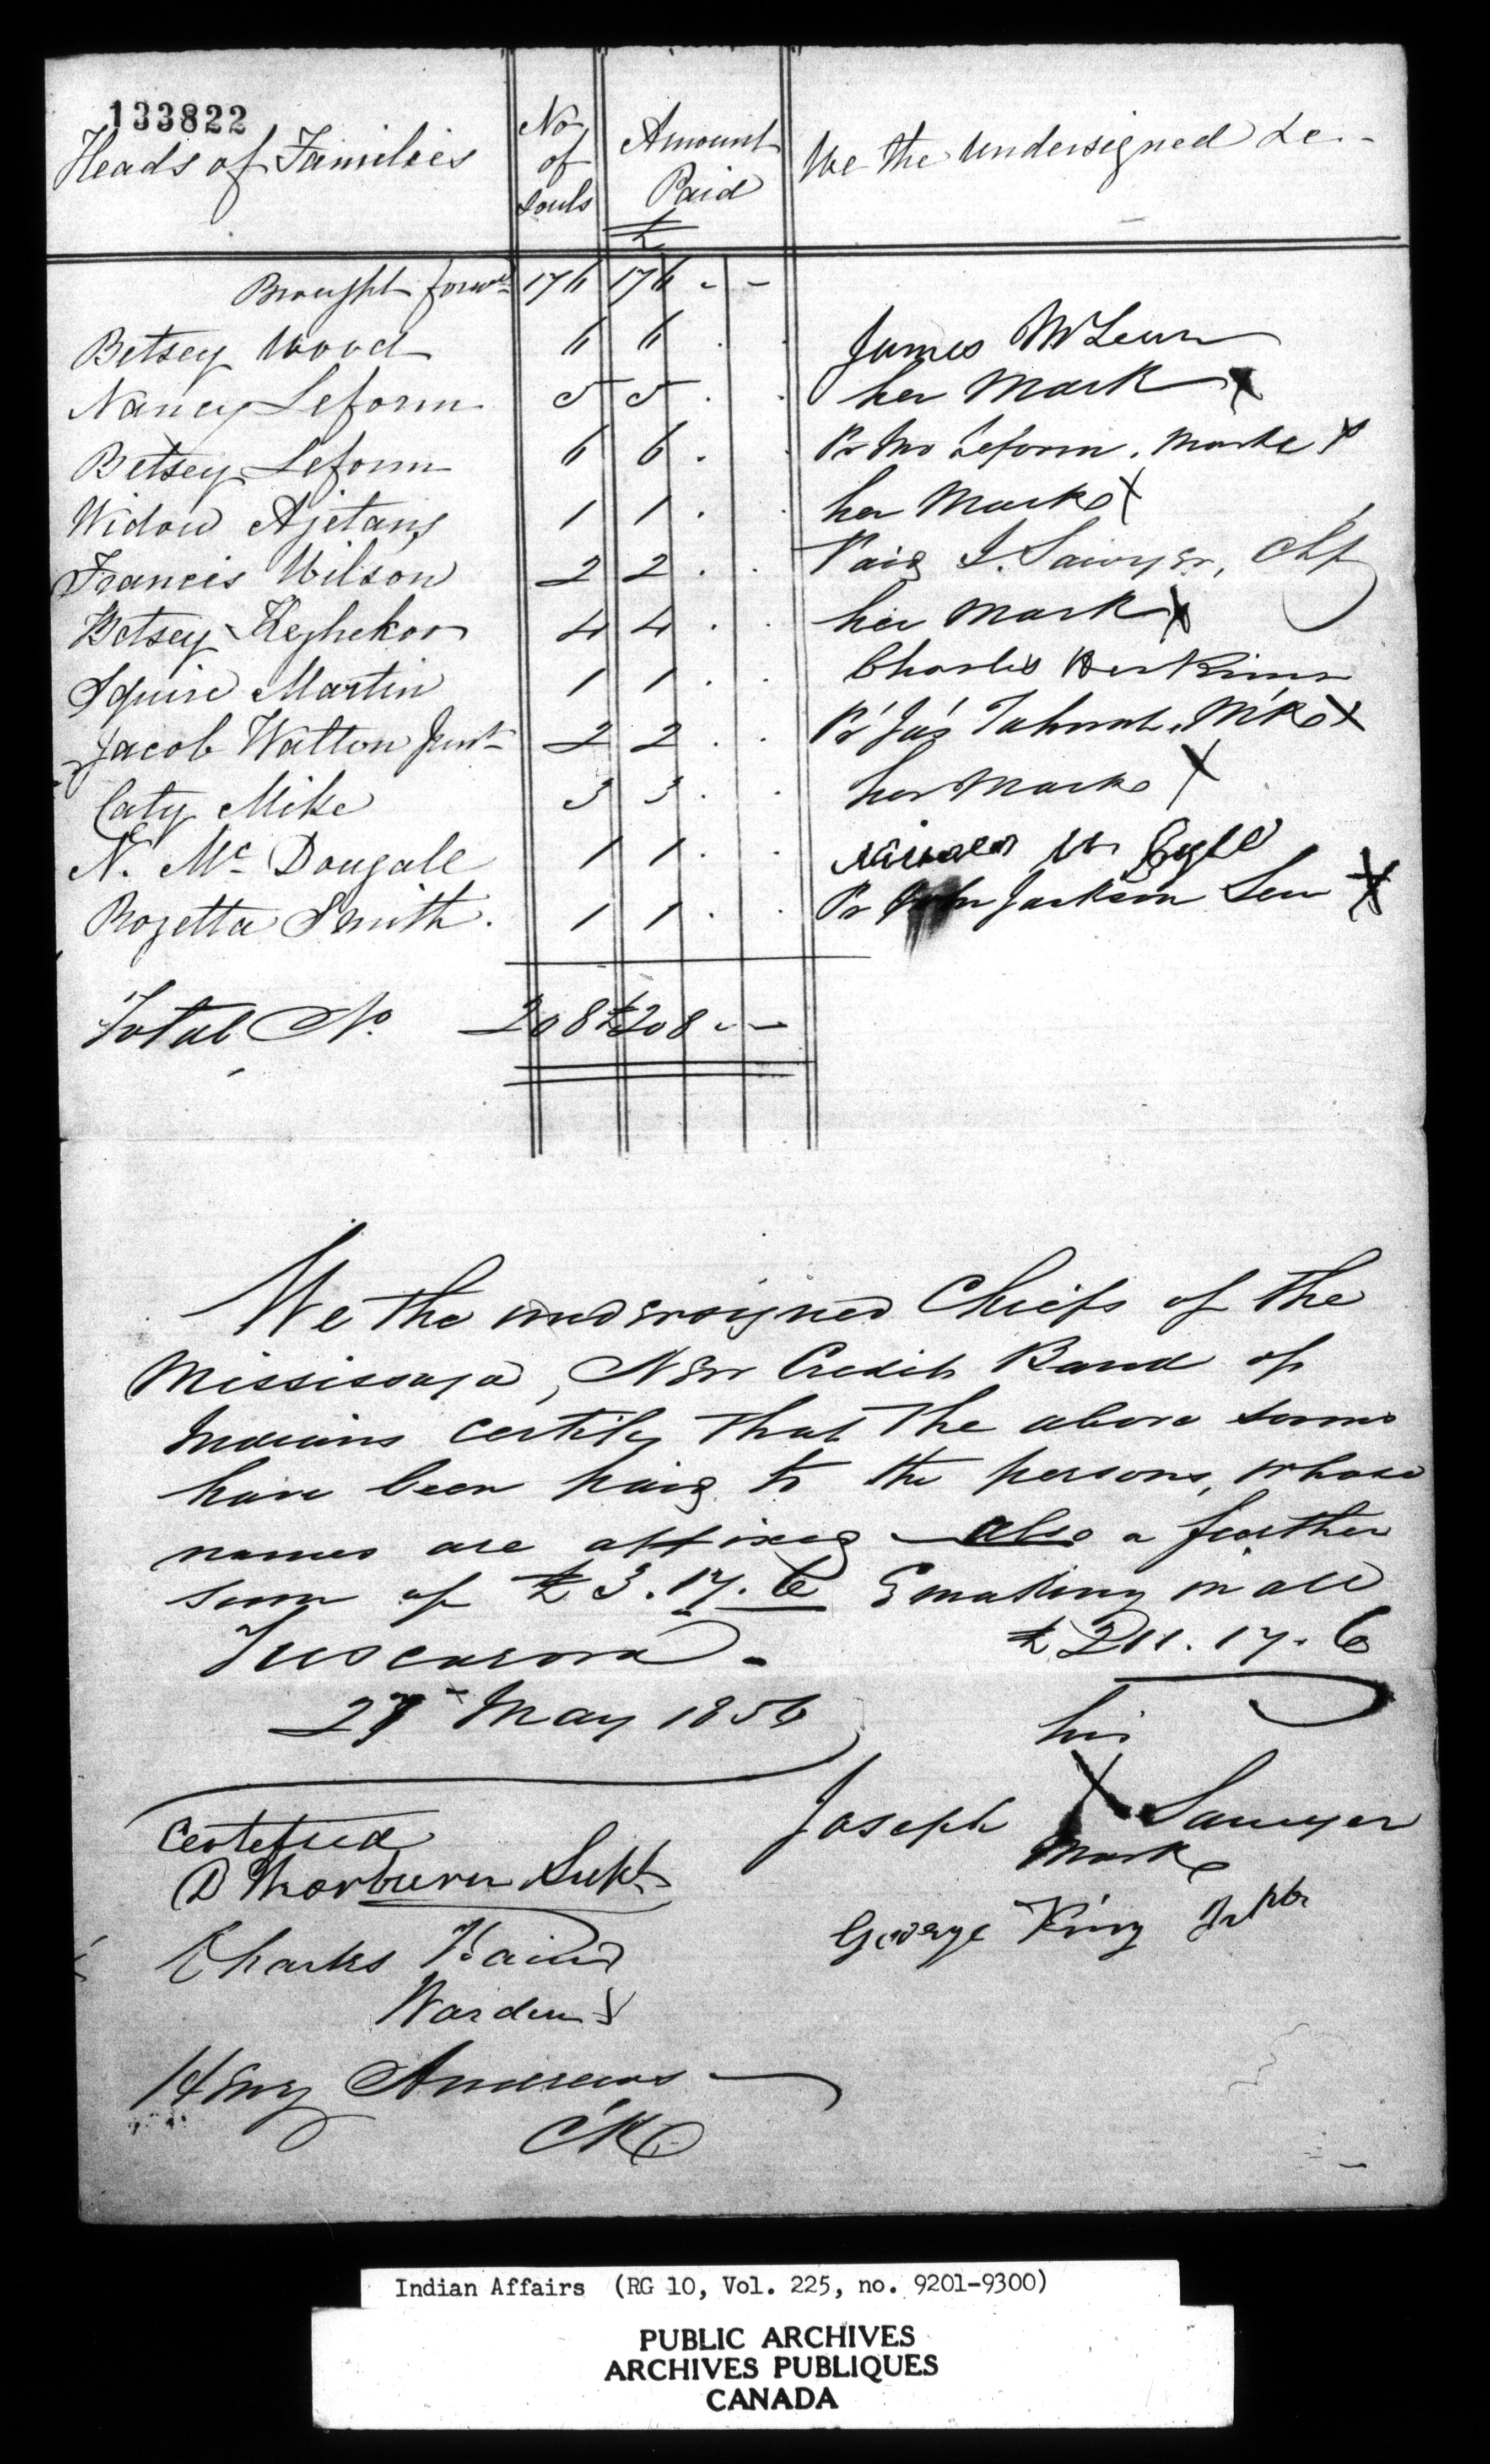 133822
Heads of Families | No of Souls | Amount Paid £ | We the Undersigned &c.
Brought forwd 176 176 - -
Betsey Wood 6 6 . . James McLean
Nancy Leform 5 5 . . her Mark X
Betsey Leform 6 6 . . Pr Leform. Marke X
Widow Ajetans 1 1 . . her Mark X
Francis Wilson 2 2 . . Paid J. Sawyer, Chf
Betsey Keghekoo 4 4 . . her Mark X
Squire Martin 1 1 . . Charles Herkimer
Jacob Walton Junr 2 2 . . Pr Jas Mk X
Caty Mike 3 3 . . her Mark X
N. Mc Dougall 1 1 . .
Rozetta Smith. 1 1 . . Pr John Jackson Sen X
Total No. 208 £208 - -
We the undersigned Chiefs of the
Mississaga, New Credit Band of
Indians certify that the above sums
have been paid to the persons, whose
names are affixed - also a further
sum of £3.17.6 making in all
Tuscarora - £211.17.6
27 May 1856
his
Joseph X Sawyer
Mark
George King
Certified
D Thorburn Supt
Charles Baird
Warden
Henry Andrews
Ck
Indian Affairs (RG 10, Vol. 225, no. 9201-9300)
PUBLIC ARCHIVES
ARCHIVES PUBLIQUES
CANADA